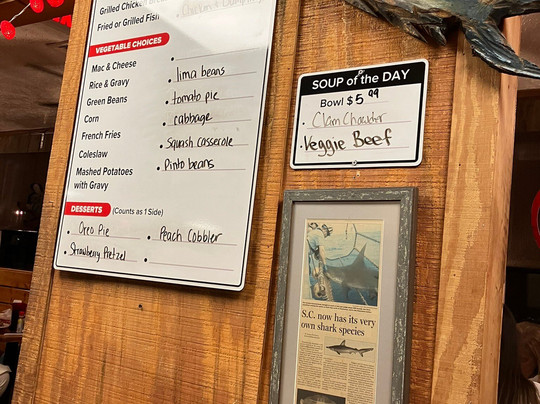 Grilled Chicken Breast
Fried or Grilled Fish
VEGETABLE CHOICES
Mac & Cheese
Rice & Gravy
Green Beans
Corn
French Fries
Coleslaw
Mashed Potatoes
with Gravy
• lima beans
• tomato pie
• cabbage
• Squash casserole
• Pinto beans
DESSERTS (Counts as 1 Side)
• Oreo Pie
• Strawberry Pretzel
• Peach Cobbler
•
SOUP of the DAY
Bowl $5 99
• Clam Chowder
• Veggie Beef
S.C. now has its very
own shark species